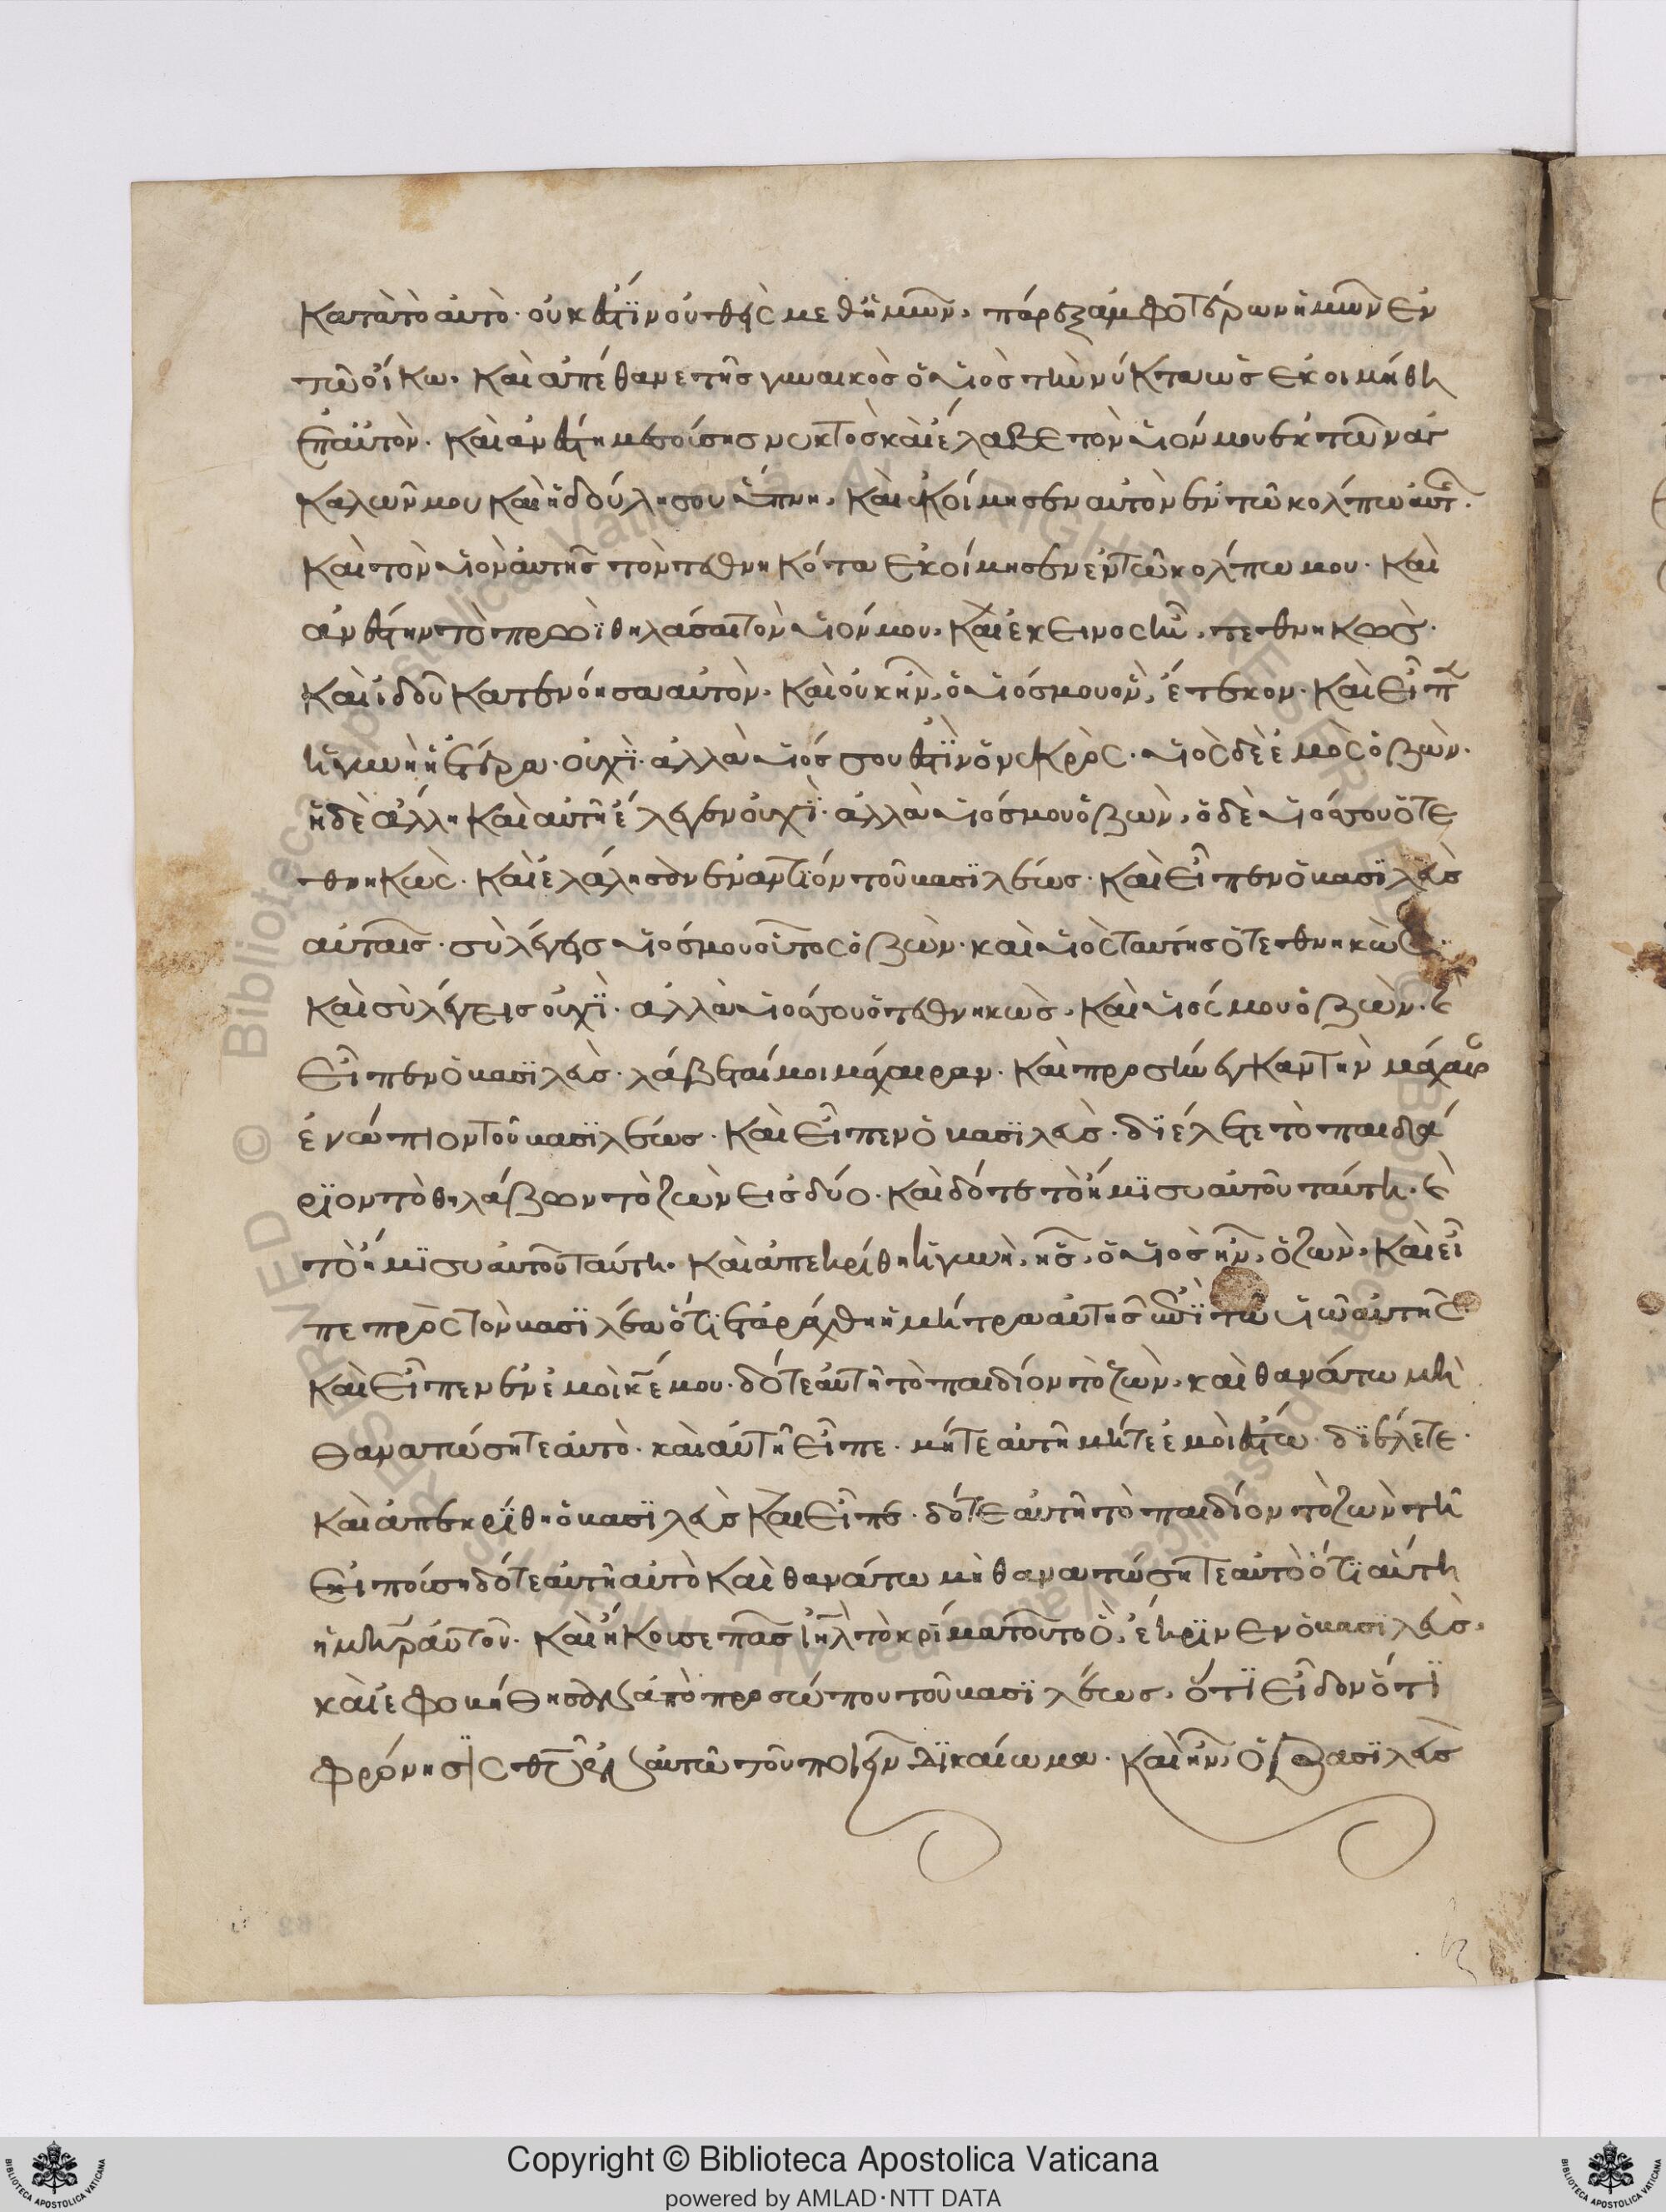 κατὰ τὸ αὐτὸ· οὐκ ἔστϊν οὐθεὶς μεθ ἡμῶν, πάρεξ ἀμφοτέρων ἡμῶν ἐν
τῶ οἴκω. καὶ ἀπέθανε τῆς γυναικὸς ὁ υἱὸς τὴν νύκτα ὡς ἐκοιμήθη
ἐπαὐτὸν. καὶ ἀνέστη μέσοίσης νυκτὸς καὶ ἔλαβε τὸν υἱόν μου ἐκ τῶν ἀγ
καλῶν μου καὶ ἡ δούλη σου ὕπνη, καὶ ἐκοίμησεν αὐτὸν ἐν τῶ κολπω αὐτ
καὶ τὸν υἱὸν αὐτῆς τὸν τεθνηκότα ἐκοίμησεν ἐν τῶ κολπω μου. καὶ
ἀνέστην τὸ πρωϊ θηλάσαι τὸν υἱόν μου, καὶ ἐκεινος ἦν, τεθνηκὼς.
καὶ ἰδοῦ κατενόησα αὐτὸν. καὶ οὐκ ἦν, ὁ υἱός μου ὃν, ἔτεκον. καὶ εἶπ
ἡ γυνὴ ἡ ἑτέρα· οὐχϊ· ἀλλὰ υἱός σου ἐστϊν ὁ νεκρὸς. υἱὸς δὲ ἐμὸς ὁ ζῶν.
ἡ δὲ ἄλλη καὶ αὐτῆ ἔλεγεν οὐχϊ· ἀλλὰ υἱός μου ὁ ζῶν, ὁ δὲ υἱός σου ὁ τε
θνηκὼς. καὶ ἐλάλησὸν ἐναντίον τοῦ βασϊλέως. καὶ εἶπεν ὁ βασϊλεὺς
αὐταῖς· σὺ λέγεις υἱός μου οὗτος ὁ ζῶν. καὶ υἱὸς ταύτης ὁ τεθνηκὼς.
καὶ σὺ λέγεις οὐχϊ· ἀλλὰ υἱός σου ὁ τεθνηκὼς, καὶ υἱός μου ὁ ζῶν. ϗ
εἶπεν ὁ βασϊλεὺς· λάβεται μοι μάχαιραν. καὶ προσήνεγκαν τὴν μάχαιρ
ἐνώπιον τοῦ βασϊλέως. καὶ εἶπεν ὁ βασϊλεὺς· δϊέλετε τὸ παιδά
ρϊον τὸ θηλάζων τὸ ζῶν εις δύο. καὶ δότε τὸ ἥμϊσυ αὐτοῦ ταύτη. ϗ
τὸ ἥμϊσυ αὐτοῦ ταύτη. καὶ ἀπεκρίθη ἡ γυνὴ, ἧς, ὁ υἱὸς ἦν, ὁ ζῶν, καὶ εἶ
πε πρὸς τὸν βασϊλέα ὅτϊ ἐταράχθη ἡ μήτρα αὐτῆς ἐπϊ τῶ υἱῶ αὐτῆς
καὶ εἶπεν ἐν ἐμοὶ κε μου. δότε αὐτῆ τὸ παιδίον τὸ ζῶν, καὶ θανάτω μὴ
θανατώσητε αὐτὸ. καὶ αὐτῆ εἶπε. μήτε αὐτῆ μήτε ἐμοὶ ἔστω. δϊέλετε.
καὶ ἀπεκρϊθη ὁ βασϊλεὺς καὶ εἶπε. δότε αὐτῆ τὸ παιδίον τὸ ζῶν τῆ
εἰποίση δότε αὐτῆ αὐτὸ καὶ θανάτω μὴ θανατώσητε αὐτὸ ὅτϊ αὕτη
ἡ μηρ αὐτοῦ. καὶ ἤκουσε πᾶς ιηλ τὸ κρίμα τοῦτο ὃ, ἔκρϊνεν ὁ βασϊλεὺς,
καὶ ἐφοβήθησὸν ἀπὸ προσώπου τοῦ βασϊλέως, ὅτϊ εἶδον ὅτϊ
φρόνησϊς θῦ ἐν αὐτῶ τοῦ ποιεῖν δϊκαίωμα. καὶ ἦν, ὁ βασϊλεὺς